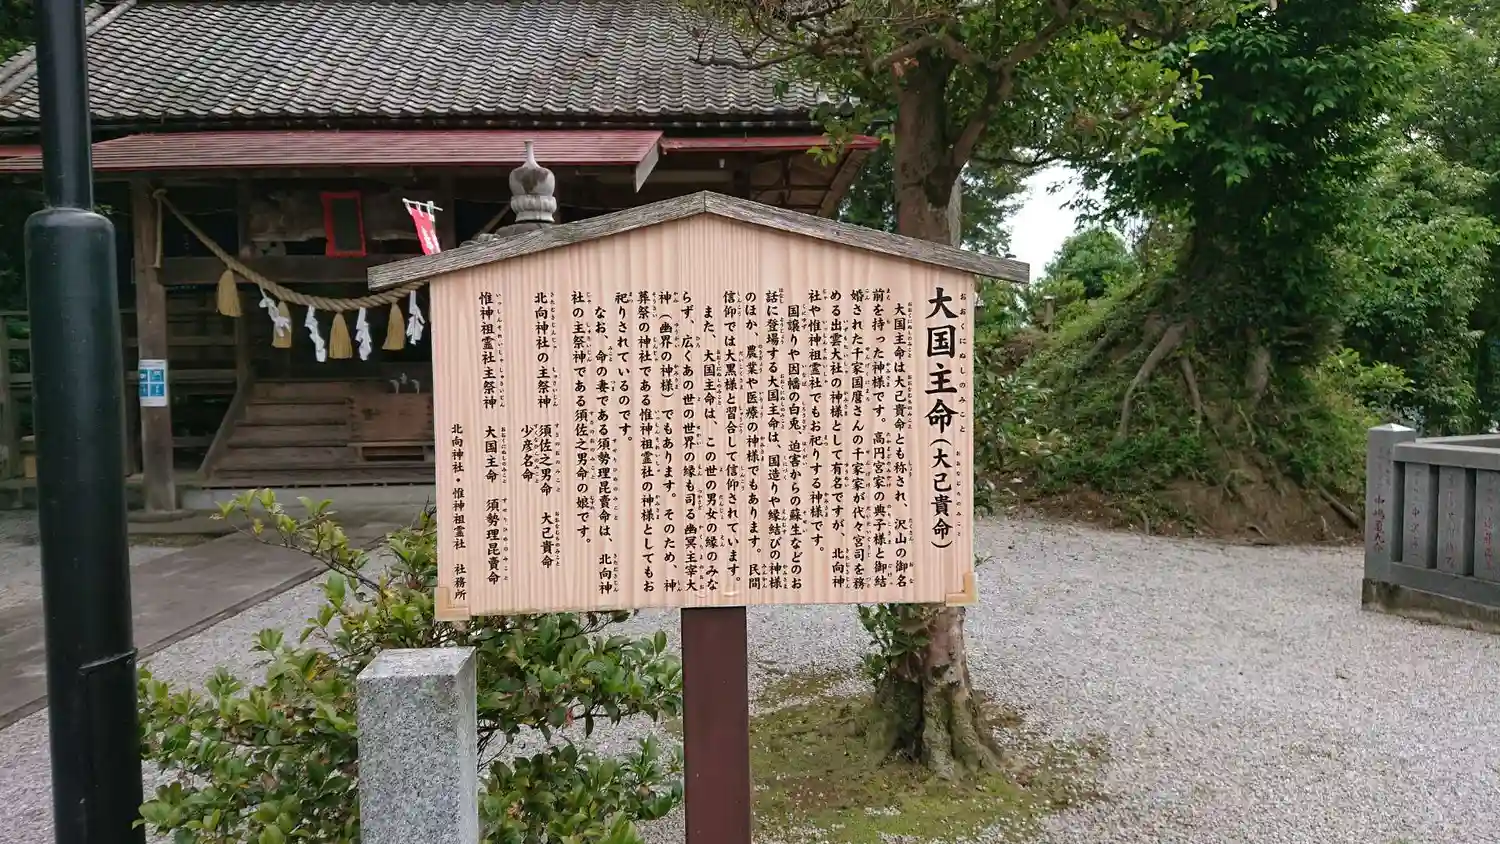 大国主命(大己貴命)
大国主命は大己貴命とも称され、沢山の御名
前を持った神様です。高円宮家の典子様と御結
婚された千家国麿さんの千家家が代々宮司を務
める出雲大社の神様として有名ですが、北向神
社や惟神祖霊社でもお祀りする神様です。
国譲りや因幡の白兎、迫害からの蘇生などのお
話に登場する大国主命は、国造りや縁結びの神様
のほか、農業や医療の神様でもあります。民間
信仰では大黒様と習合して信仰されています。
また、大国主命は、この世の男女の縁のみな
らず、広くあの世の世界の縁も司る幽冥主宰大
神(幽界の神様)でもあります。そのため、神
葬祭の神社である惟神祖霊社の神様としてもお
祀りされているのです。
なお、命の妻である須勢理昆賣命は、北向神
社の主祭神である須佐之男命の娘です。
北向神社の主祭神 須佐之男命 大己貴命
少彦名命
惟神祖霊社主祭神 大国主命 須勢理昆賣命
北向神社・惟神祖霊社 社務所